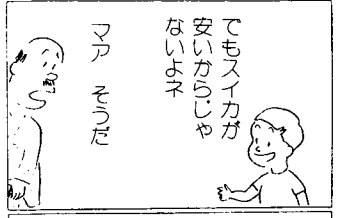 でもスイカが
安いからじゃ
ないよネ
マア　そうだ